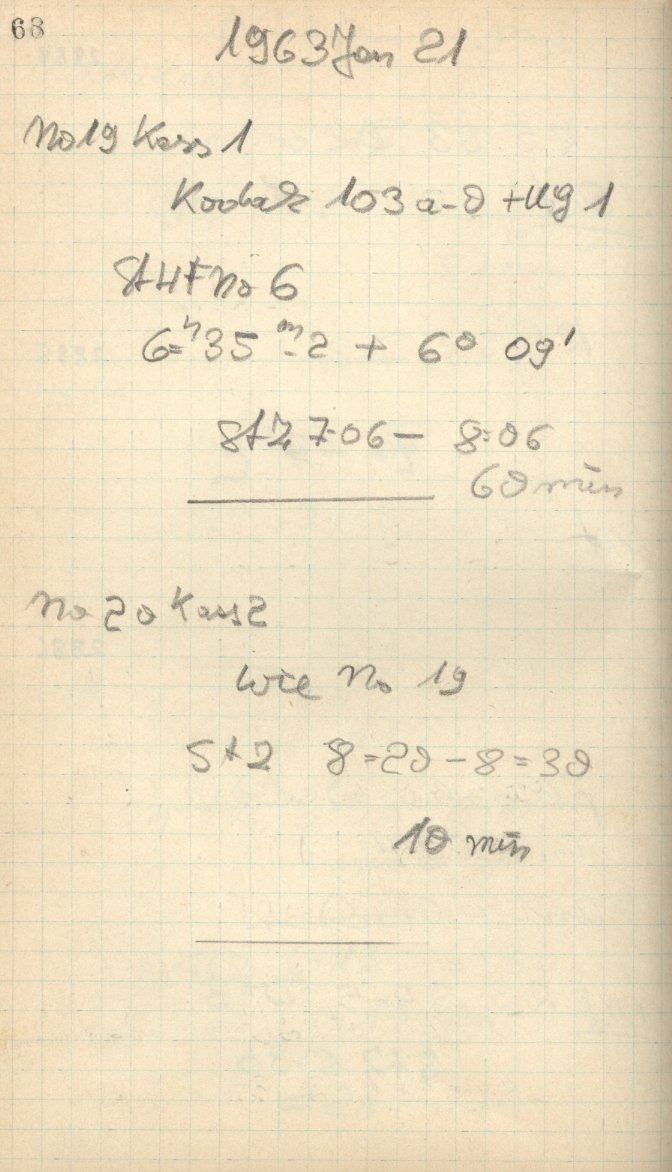 68
1963 Jan 21
No 19 Kass 1
Kodak 103 a-O + UG 1
St 4 F No 6
6=h 35 m-2 + 6° 09'
StZ 7=06 — 8=06
60 min
No 20 Kass 2
wie No 19
StZ 8=20 – 8=30
10 min